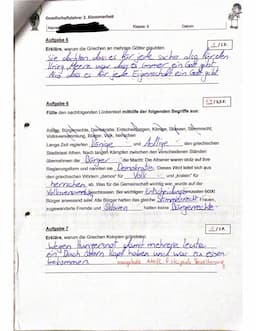 Gesellschaftslehre: 2. Klassenarbeit
Name:
Klasse: 6
Datum:
Aufgabe 5
Erkläre, warum die Griechen an mehrere Götter glaubten.
Sie dachten das es für jede sache also für den
Krieg, Meere usw. das es immer ein Gott gibt.
Also das es für jede Eigenschaft ein Gott gibt.
Aufgabe 6
Fülle den nachfolgenden Lückentext mithilfe der folgenden Begriffe aus:
Adlige, Bürgerrechte, Demokratie, Entscheidungen, Könige, Sklaven, Stimmrecht,
Volksversammlung, Bürger, Volk, herrschen
Lange Zeit regierten Könige und Adlige die griechischen
Stadtstaat Athen. Nach langen Kämpfen zwischen den verschiedenen Ständen
übernahmen die Bürger die Macht. Die Athener waren stolz auf ihre
Regierungsform und nannten sie Demokratie. Dieses Wort leitet sich aus
den griechischen Wörtern „demos“ für Volk und „kratein“ für
herrschen ab. Was für die Gemeinschaft wichtig war, wurde auf der
Volksversammlung Bei wichtigen Entscheidungen mussten 6000
Bürger anwesend sein. Alle Bürger hatten das gleiche Stimmrecht. Frauen,
zugewanderte Fremde und Sklaven hatten keine Bürgerrechte.
Aufgabe 7
Erkläre, warum die Griechen Kolonien gründeten.
Wegen Hungersnot damit mehrere leute
ein
bekommen